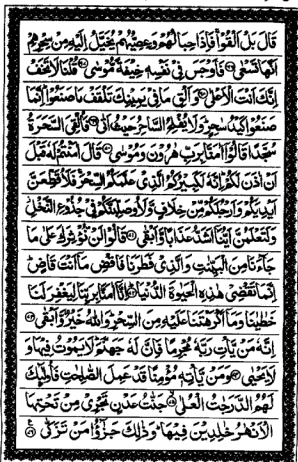 قَالَ بَلْ اَلْقُوْا فَاِذَا حِبَالُهُمْ وَعِصِيُّهُمْ يُخَيَّلُ اِلَيْهِ مِنْ سِحْرِهِمْ
اَنَّهَا تَسْعٰى ﴿۶۶﴾ فَاَوْجَسَ فِيْ نَفْسِهٖ خِيْفَةً مُّوْسٰى ﴿۶۷﴾ قُلْنَا لَا تَخَفْ
اِنَّكَ اَنْتَ الْاَعْلٰى ﴿۶۸﴾ وَاَلْقِ مَا فِيْ يَمِيْنِكَ تَلْقَفْ مَا صَنَعُوْا اِنَّمَا
صَنَعُوْا كَيْدُ سٰحِرٍ وَلَا يُفْلِحُ السَّاحِرُ حَيْثُ اَتٰى ﴿۶۹﴾ فَاُلْقِيَ السَّحَرَةُ
سُجَّدًا قَالُوْا اٰمَنَّا بِرَبِّ هٰرُوْنَ وَمُوْسٰى ﴿۷۰﴾ قَالَ اٰمَنْتُمْ لَهٗ قَبْلَ
اَنْ اٰذَنَ لَكُمْ اِنَّهٗ لَكَبِيْرُكُمُ الَّذِيْ عَلَّمَكُمُ السِّحْرَ فَلَاُقَطِّعَنَّ
اَيْدِيَكُمْ وَاَرْجُلَكُمْ مِّنْ خِلَافٍ وَّلَاُوصَلِّبَنَّكُمْ فِيْ جُذُوْعِ النَّخْلِ
وَلَتَعْلَمُنَّ اَيُّنَا اَشَدُّ عَذَابًا وَّاَبْقٰى ﴿۷۱﴾ قَالُوْا لَنْ نُّؤْثِرَكَ عَلٰى مَا
جَآءَنَا مِنَ الْبَيِّنٰتِ وَالَّذِيْ فَطَرَنَا فَاقْضِ مَا اَنْتَ قَاضٍ
اِنَّمَا تَقْضِيْ هٰذِهِ الْحَيٰوةَ الدُّنْيَا ﴿۷۲﴾ اِنَّا اٰمَنَّا بِرَبِّنَا لِيَغْفِرَ لَنَا
خَطٰيٰنَا وَمَا اَكْرَهْتَنَا عَلَيْهِ مِنَ السِّحْرِ وَاللّٰهُ خَيْرٌ وَّاَبْقٰى ﴿۷۳﴾
اِنَّهٗ مَنْ يَّاْتِ رَبَّهٗ مُجْرِمًا فَاِنَّ لَهٗ جَهَنَّمَ لَا يَمُوْتُ فِيْهَا وَ
لَا يَحْيٰى ﴿۷۴﴾ وَمَنْ يَّاْتِهٖ مُؤْمِنًا قَدْ عَمِلَ الصّٰلِحٰتِ فَاُولٰٓئِكَ
لَهُمُ الدَّرَجٰتُ الْعُلٰى ﴿۷۵﴾ جَنّٰتُ عَدْنٍ تَجْرِيْ مِنْ تَحْتِهَا
الْاَنْهٰرُ خٰلِدِيْنَ فِيْهَا وَذٰلِكَ جَزٰٓؤُا مَنْ تَزَكّٰى ﴿۷۶﴾